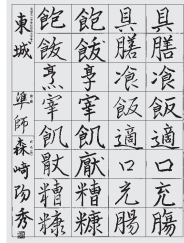 具膳飡飯適口充腸
具膳飡飯適口充腸
飽飫亨宰飢厭糟糠
飽飫烹宰飢猒糟糠
東城 準師 森崎陽秀